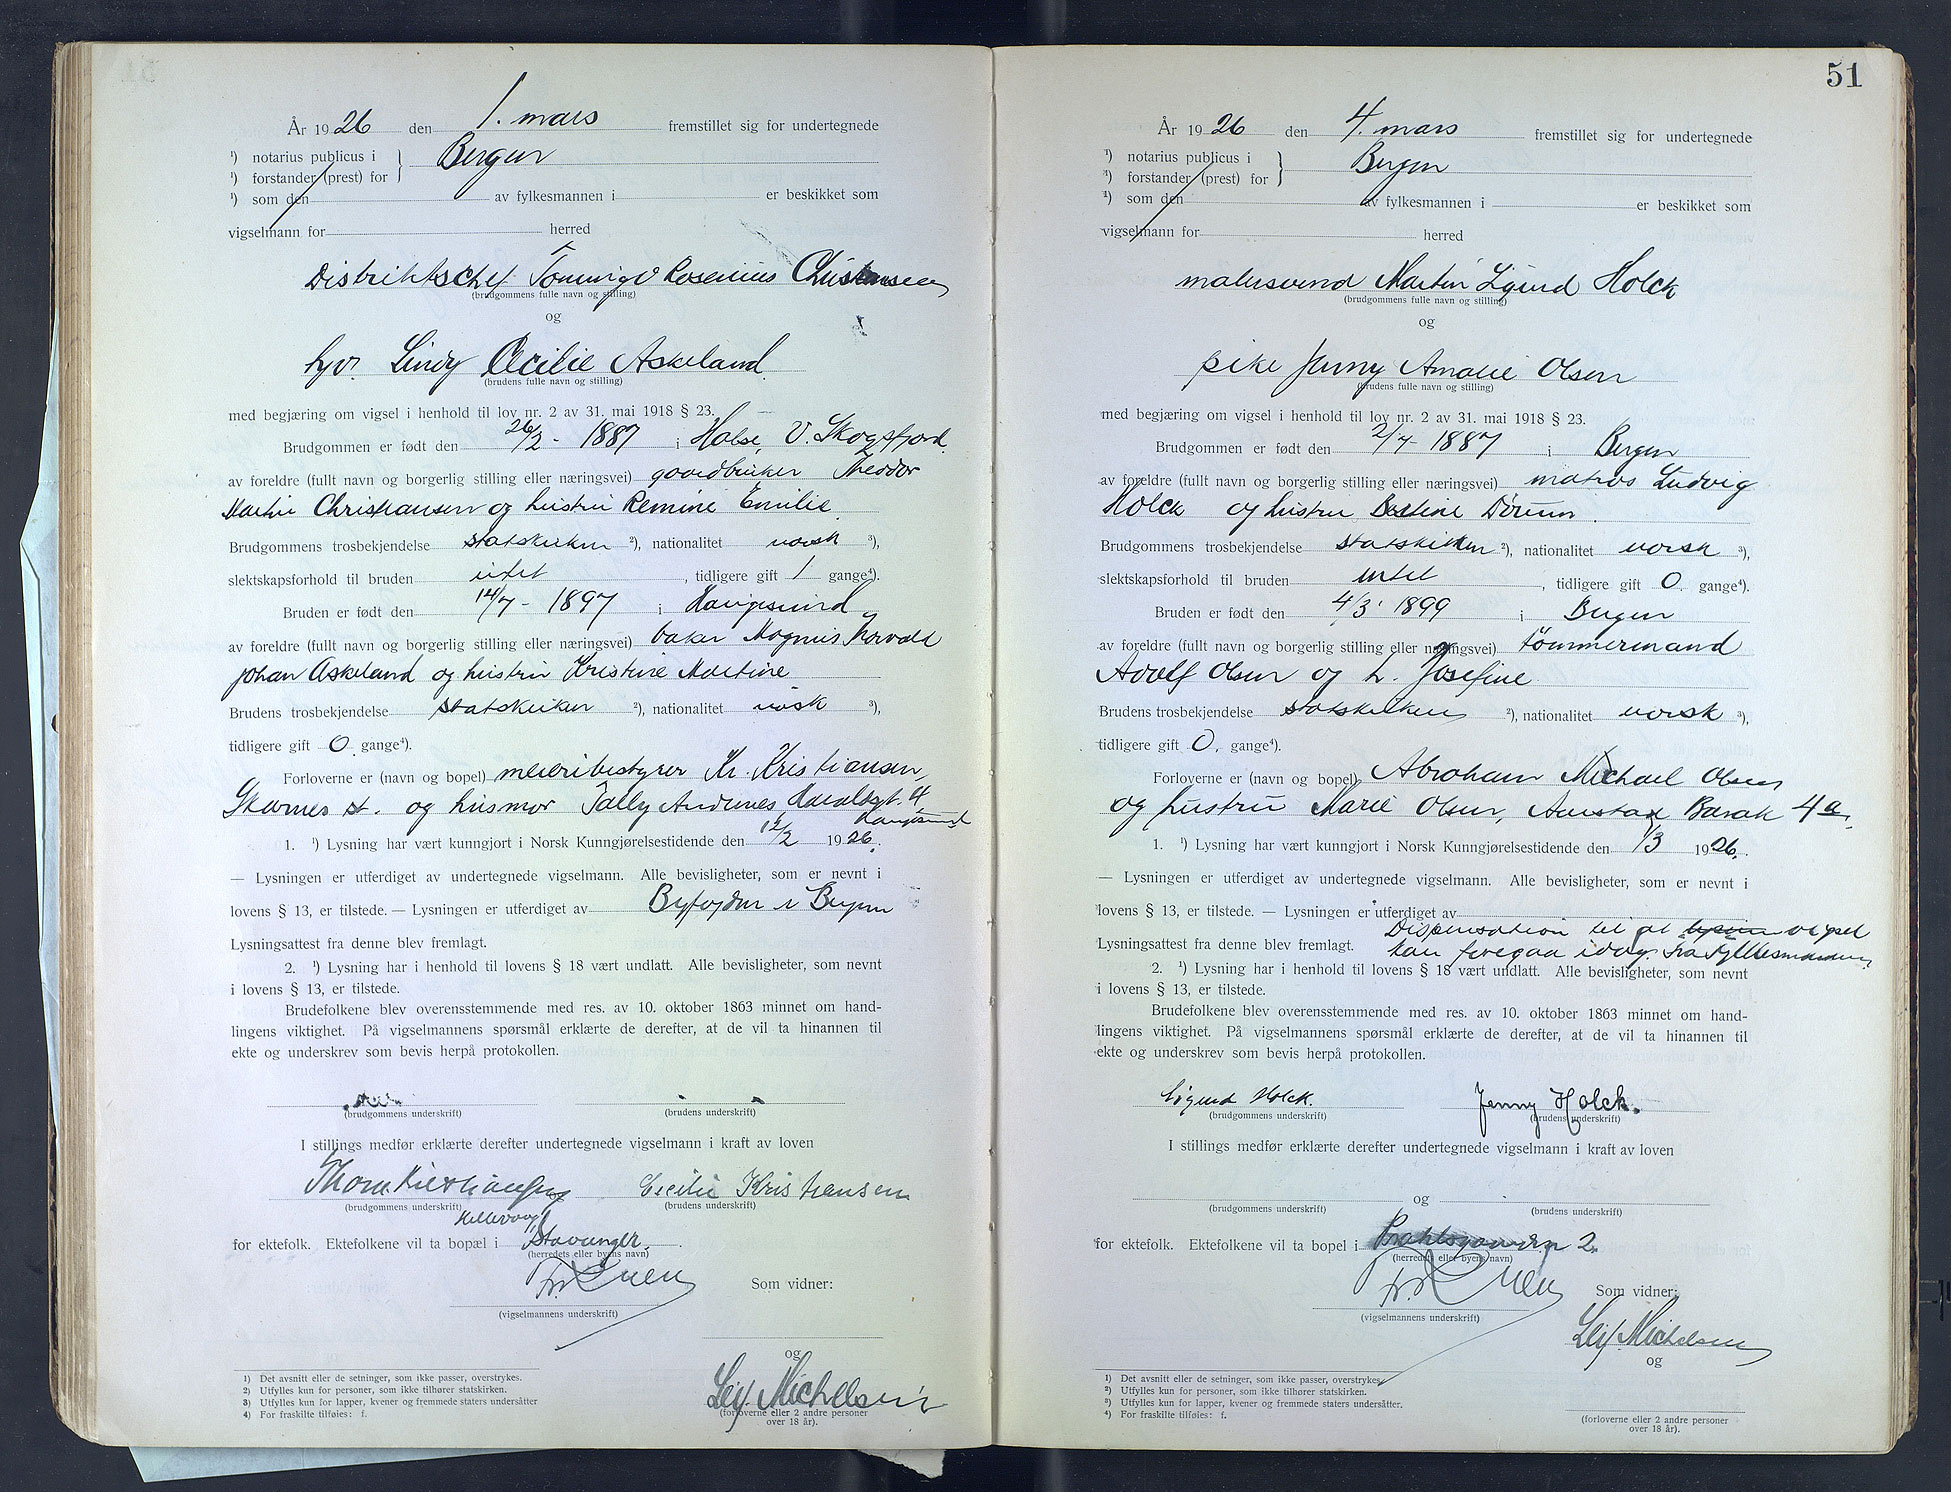 År 1926 den 1. mars fremstillet sig for undertegnede
¹) notarius publicus i } Bergen
¹) forstander (prest) for
¹) som den av fylkesmannen i er beskikket som
vigselmann for herred
Distriktschef Rosenius Christensen
(brudgommens fulle navn og stilling)
og
frk. Lindy Cecilie Askeland
(brudens fulle navn og stilling)
med begjæring om vigsel i henhold til lov nr. 2 av 31. mai 1918 § 23.
Brudgommen er født den 26/2 - 1887 i
av foreldre (fullt navn og borgerlig stilling eller næringsvei) gaardbruker Theodor
Martin Christiansen og hustru Remine Emilie
Brudgommens trosbekjendelse statskirken ²), nationalitet norsk ³),
slektskapsforhold til bruden intet, tidligere gift 1 gange⁴).
Bruden er født den 14/7 - 1897 i Haugesund
av foreldre (fullt navn og borgerlig stilling eller næringsvei) baker Magnus Thorvald
Johan Askeland og hustru Kristine Martine
Brudens trosbekjendelse statskirken ²), nationalitet norsk ³),
tidligere gift 0 gange⁴).
Forloverne er (navn og bopel) meieribestyrer Kr. Kristiansen,
Skarnes st. og husmor Tally Andenes Haraldsgt. 4
Haugesund
1. ¹) Lysning har vært kunngjort i Norsk Kunngjørelsestidende den 12/2 1926.
— Lysningen er utferdiget av undertegnede vigselmann. Alle bevisligheter, som er nevnt i
lovens § 13, er tilstede. — Lysningen er utferdiget av Byfogden i Bergen
Lysningsattest fra denne blev fremlagt.
2. ¹) Lysning har i henhold til lovens § 18 vært undlatt. Alle bevisligheter, som nevnt
i lovens § 13, er tilstede.
Brudefolkene blev overensstemmende med res. av 10. oktober 1863 minnet om hand-
lingens viktighet. På vigselmannens spørsmål erklærte de derefter, at de vil ta hinannen til
ekte og underskrev som bevis herpå protokollen.
(brudgommens underskrift) (brudens underskrift)
I stillings medfør erklærte derefter undertegnede vigselmann i kraft av loven
Cecilie Kristiansen
(brudgommens underskrift) (brudens underskrift)
Hillevaag
for ektefolk. Ektefolkene vil ta bopæl i Stavanger.
(herredets eller byens navn)
Som vidner:
(vigselmannens underskrift)
og
Leif Michelsen
(forloverne eller 2 andre personer
over 18 år).
1) Det avsnitt eller de setninger, som ikke passer, overstrykes.
2) Utfylles kun for personer, som ikke tilhører statskirken.
3) Utfylles kun for lapper, kvener og fremmede staters undersåtter
4) For fraskilte tilføies: f.
51
År 1926 den 4. mars fremstillet sig for undertegnede
¹) notarius publicus i } Bergen
¹) forstander (prest) for
¹) som den av fylkesmannen i er beskikket som
vigselmann for herred
malersvend Martin Sigurd Holck
(brudgommens fulle navn og stilling)
og
pike Jenny Amalie Olsen
(brudens fulle navn og stilling)
med begjæring om vigsel i henhold til lov nr. 2 av 31. mai 1918 § 23.
Brudgommen er født den 2/7 - 1887 i Bergen
av foreldre (fullt navn og borgerlig stilling eller næringsvei) matros Ludvig
Holck og hustru
Brudgommens trosbekjendelse statskirken ²), nationalitet norsk ³),
slektskapsforhold til bruden intet, tidligere gift 0 gange⁴).
Bruden er født den 4/3 1899 i Bergen
av foreldre (fullt navn og borgerlig stilling eller næringsvei) tømmermand
Adolf Olsen og h. Josefine
Brudens trosbekjendelse statskirken ²), nationalitet norsk ³),
tidligere gift 0. gange⁴).
Forloverne er (navn og bopel) Abraham Michael Olsen
og hustru Marie Olsen, Aarstad Barak 4a.
1. ¹) Lysning har vært kunngjort i Norsk Kunngjørelsestidende den 1/3 1926.
— Lysningen er utferdiget av undertegnede vigselmann. Alle bevisligheter, som er nevnt i
lovens § 13, er tilstede. — Lysningen er utferdiget av
Dispensation til at vigsel
Lysningsattest fra denne blev fremlagt. kan foregaa idag fra Fylkesmanden
2. ¹) Lysning har i henhold til lovens § 18 vært undlatt. Alle bevisligheter, som nevnt
i lovens § 13, er tilstede.
Brudefolkene blev overensstemmende med res. av 10. oktober 1863 minnet om hand-
lingens viktighet. På vigselmannens spørsmål erklærte de derefter, at de vil ta hinannen til
ekte og underskrev som bevis herpå protokollen.
Sigurd Holck. Jenny Holck.
(brudgommens underskrift) (brudens underskrift)
I stillings medfør erklærte derefter undertegnede vigselmann i kraft av loven
og
(brudgommens underskrift) (brudens underskrift)
for ektefolk. Ektefolkene vil ta bopel i Prahlsgaarden 2.
(herredets eller byens navn)
Som vidner:
(vigselmannens underskrift)
Leif Michelsen
og
(forloverne eller 2 andre personer
over 18 år).
1) Det avsnitt eller de setninger, som ikke passer, overstrykes.
2) Utfylles kun for personer, som ikke tilhører statskirken.
3) Utfylles kun for lapper, kvener og fremmede staters undersåtter.
4) For fraskilte tilføies: f.